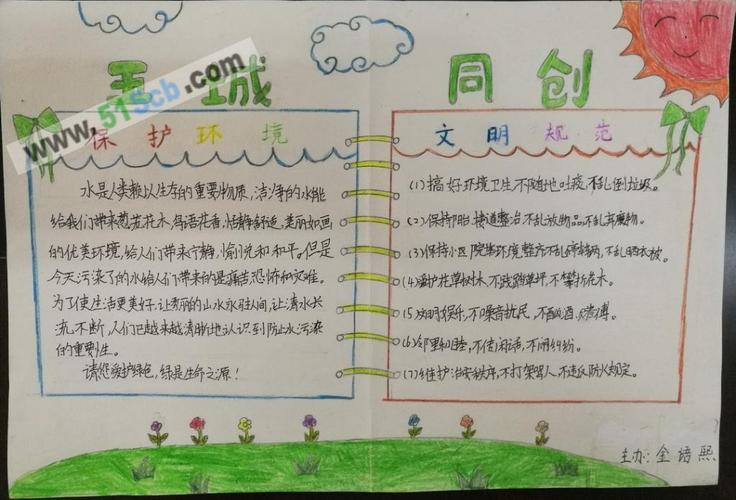 五城 同创
www.51Scb.com
保护环境
水是人类赖以生存的重要物质,洁净的水能
给我们带来葱茏花木,鸟语花香,恬静舒适,美丽如画
的优美环境,给人们带来宁静,愉悦和和平。但是
今天污染了的水给人们带来的是痛苦恐怖和灾难。
为了使生活更美好,让秀丽的山水永驻人间,让清水长
流不断,人们已越来越清晰地认识到防止水污染
的重要性。
请您爱护绿色,绿是生命之源!
文明规范
(1)搞好环境卫生,不随地吐痰,不乱倒垃圾。
(2)保持阳台、楼道整洁,不乱放物品,不乱弃废物。
(3)保持小区院落环境整齐,不乱停车辆,不乱晒衣被。
(4)爱护花草树木,不践踏草坪,不攀折花木。
(5)文明娱乐,不噪音扰民,不酗酒、赌博。
(6)邻里和睦,不传闲话,不闹纠纷。
(7)维护治安秩序,不打架骂人,不违反防火规定。
主办:金语熙